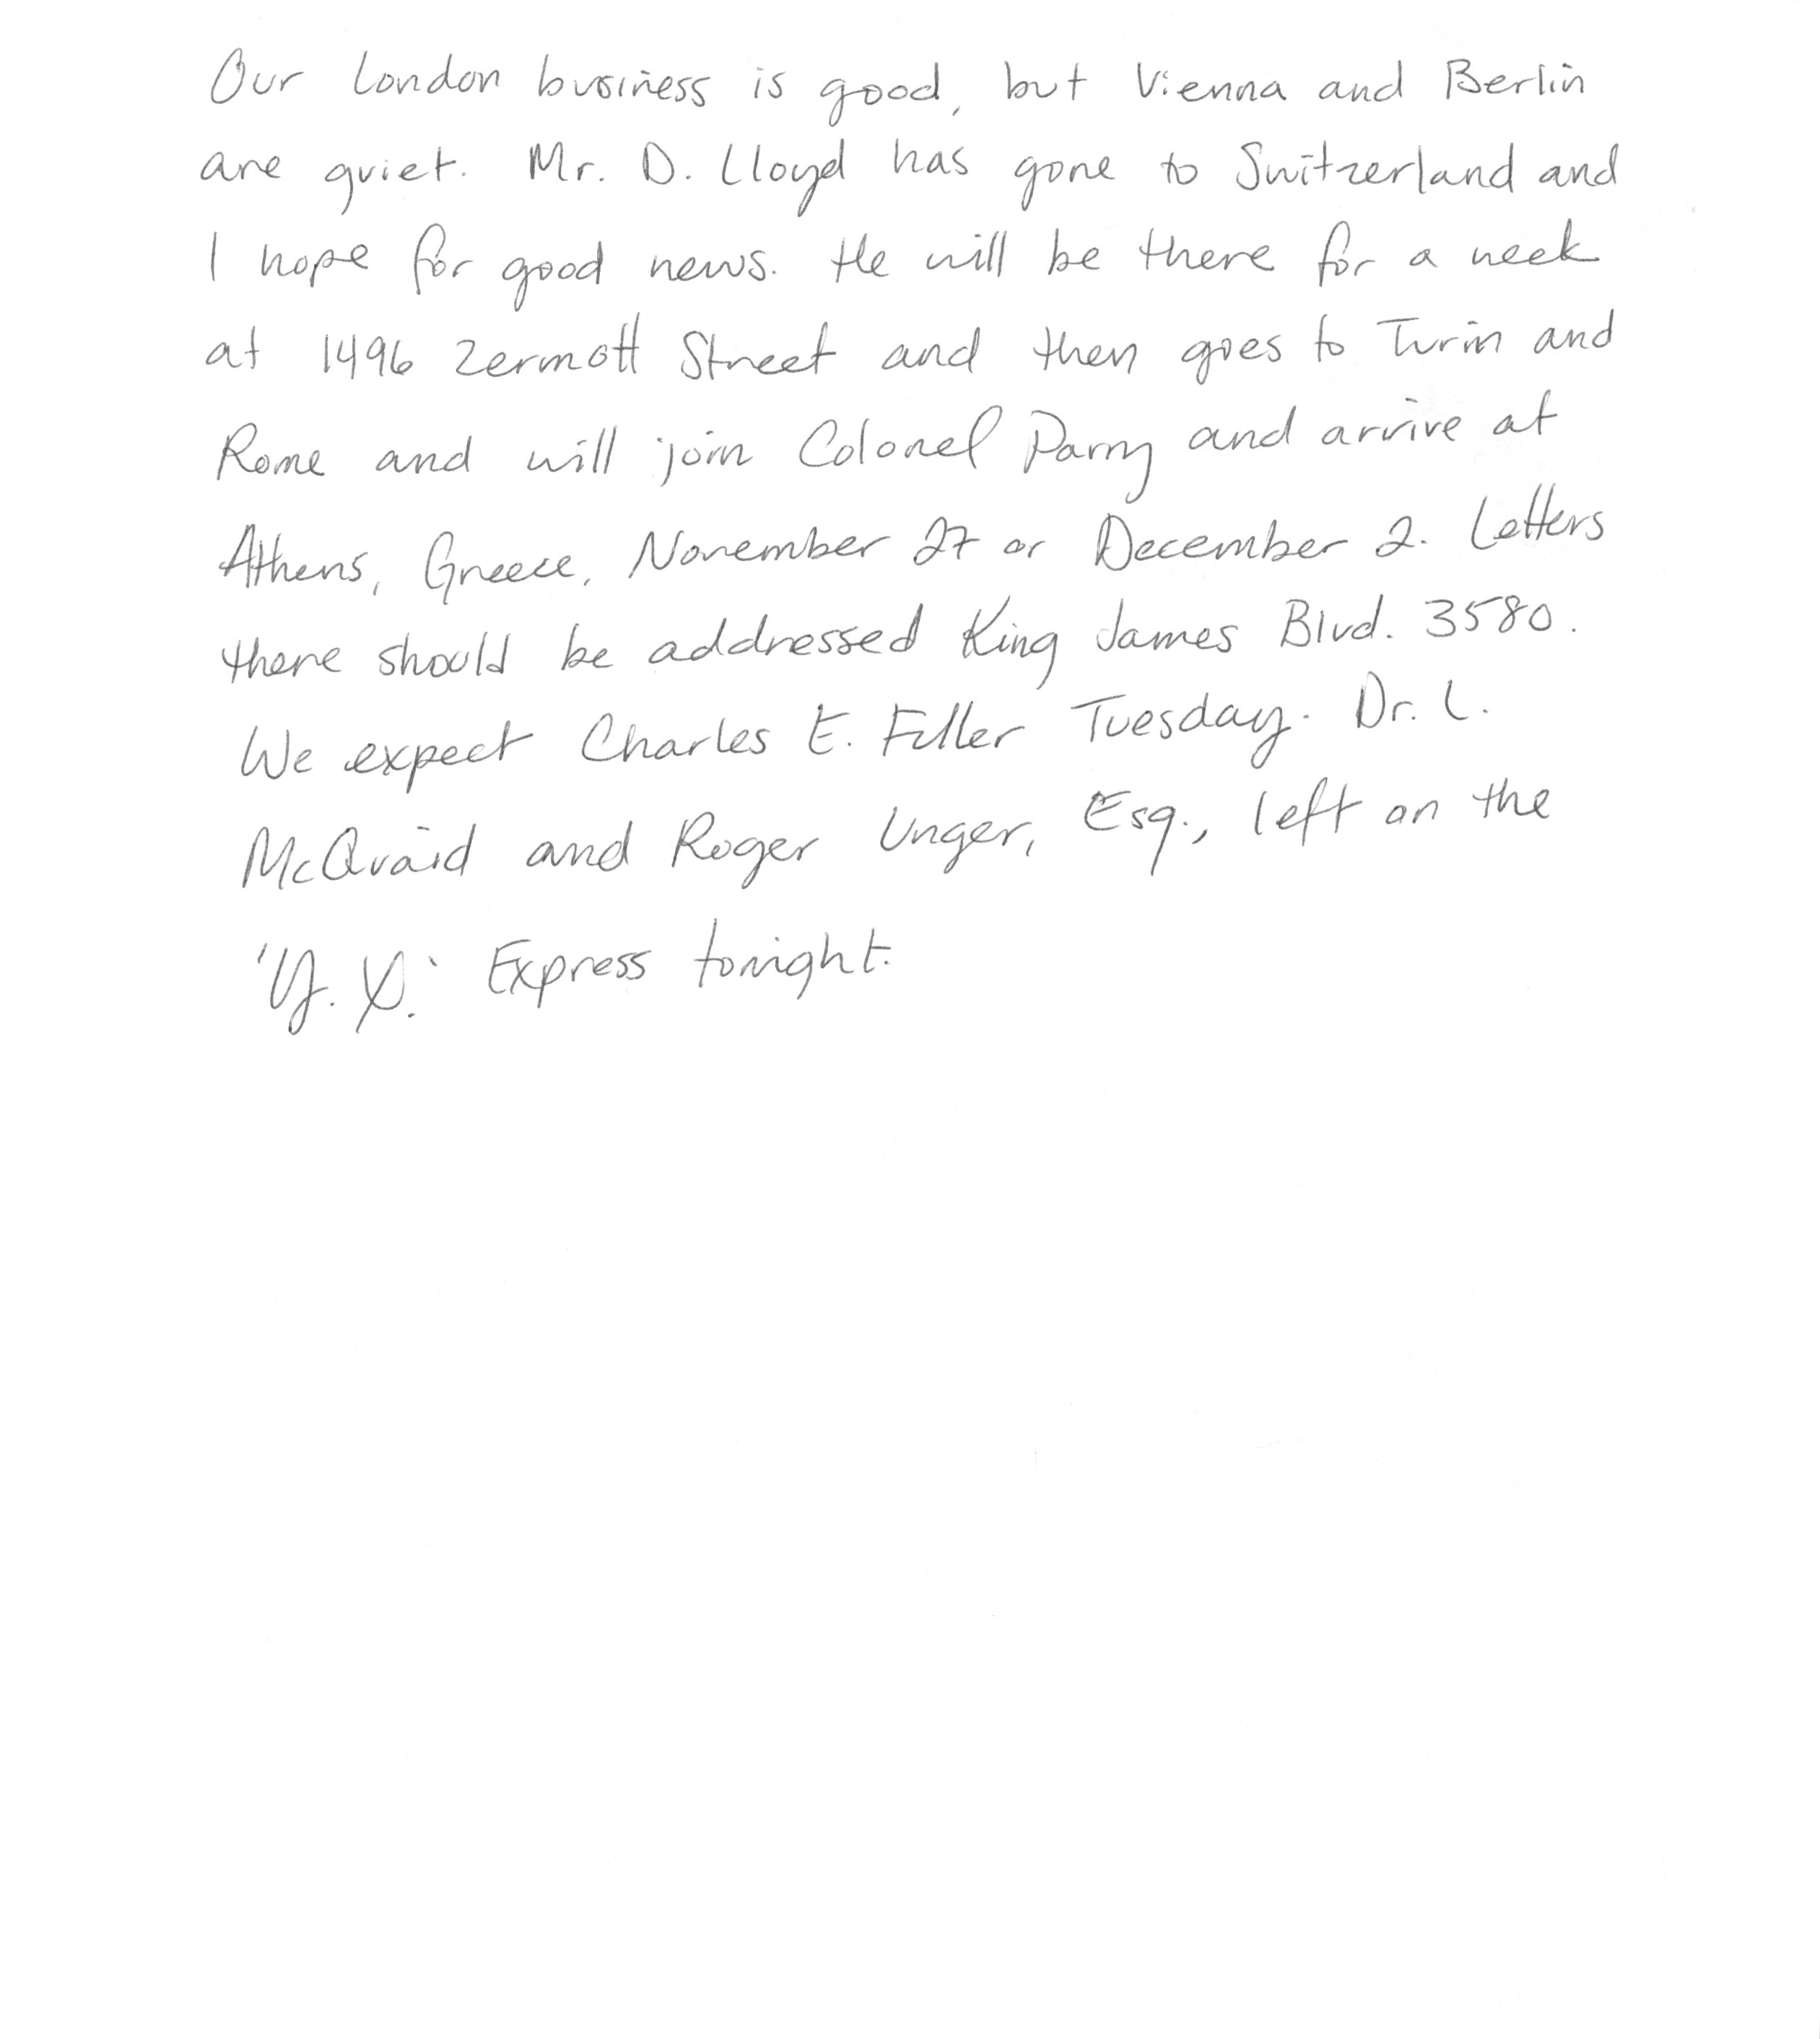 Our London business is good, but Vienna and Berlin
are quiet. Mr. D. Lloyd has gone to Switzerland and
I hope for good news. He will be there for a week
at 1496 Zermott Street and then goes to Turin and
Rome and will join Colonel Parry and arrive at
Athens, Greece, November 27 or December 2. Letters
there should be addressed King James Blvd. 3580.
We expect Charles E. Fuller Tuesday. Dr. L.
McQuaid and Roger Unger, Esq., left on the
'Y. X.' Express tonight.